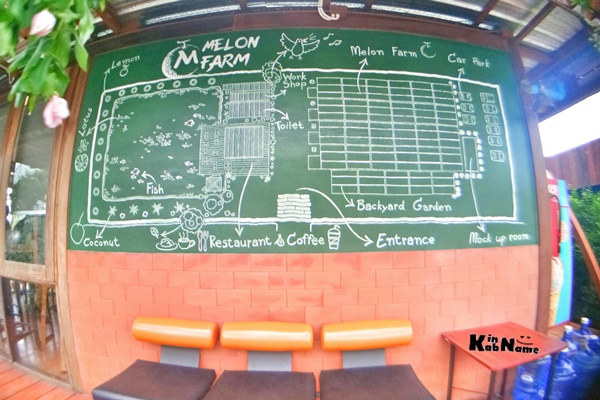 Lemon
M MELON
FARM
Work
Shop
Melon Farm
Car Park
Toilet
Fish
Backyard Garden
Coconut
Restaurant & Coffee
Entrance
Mock up room
Kin
Kab Name